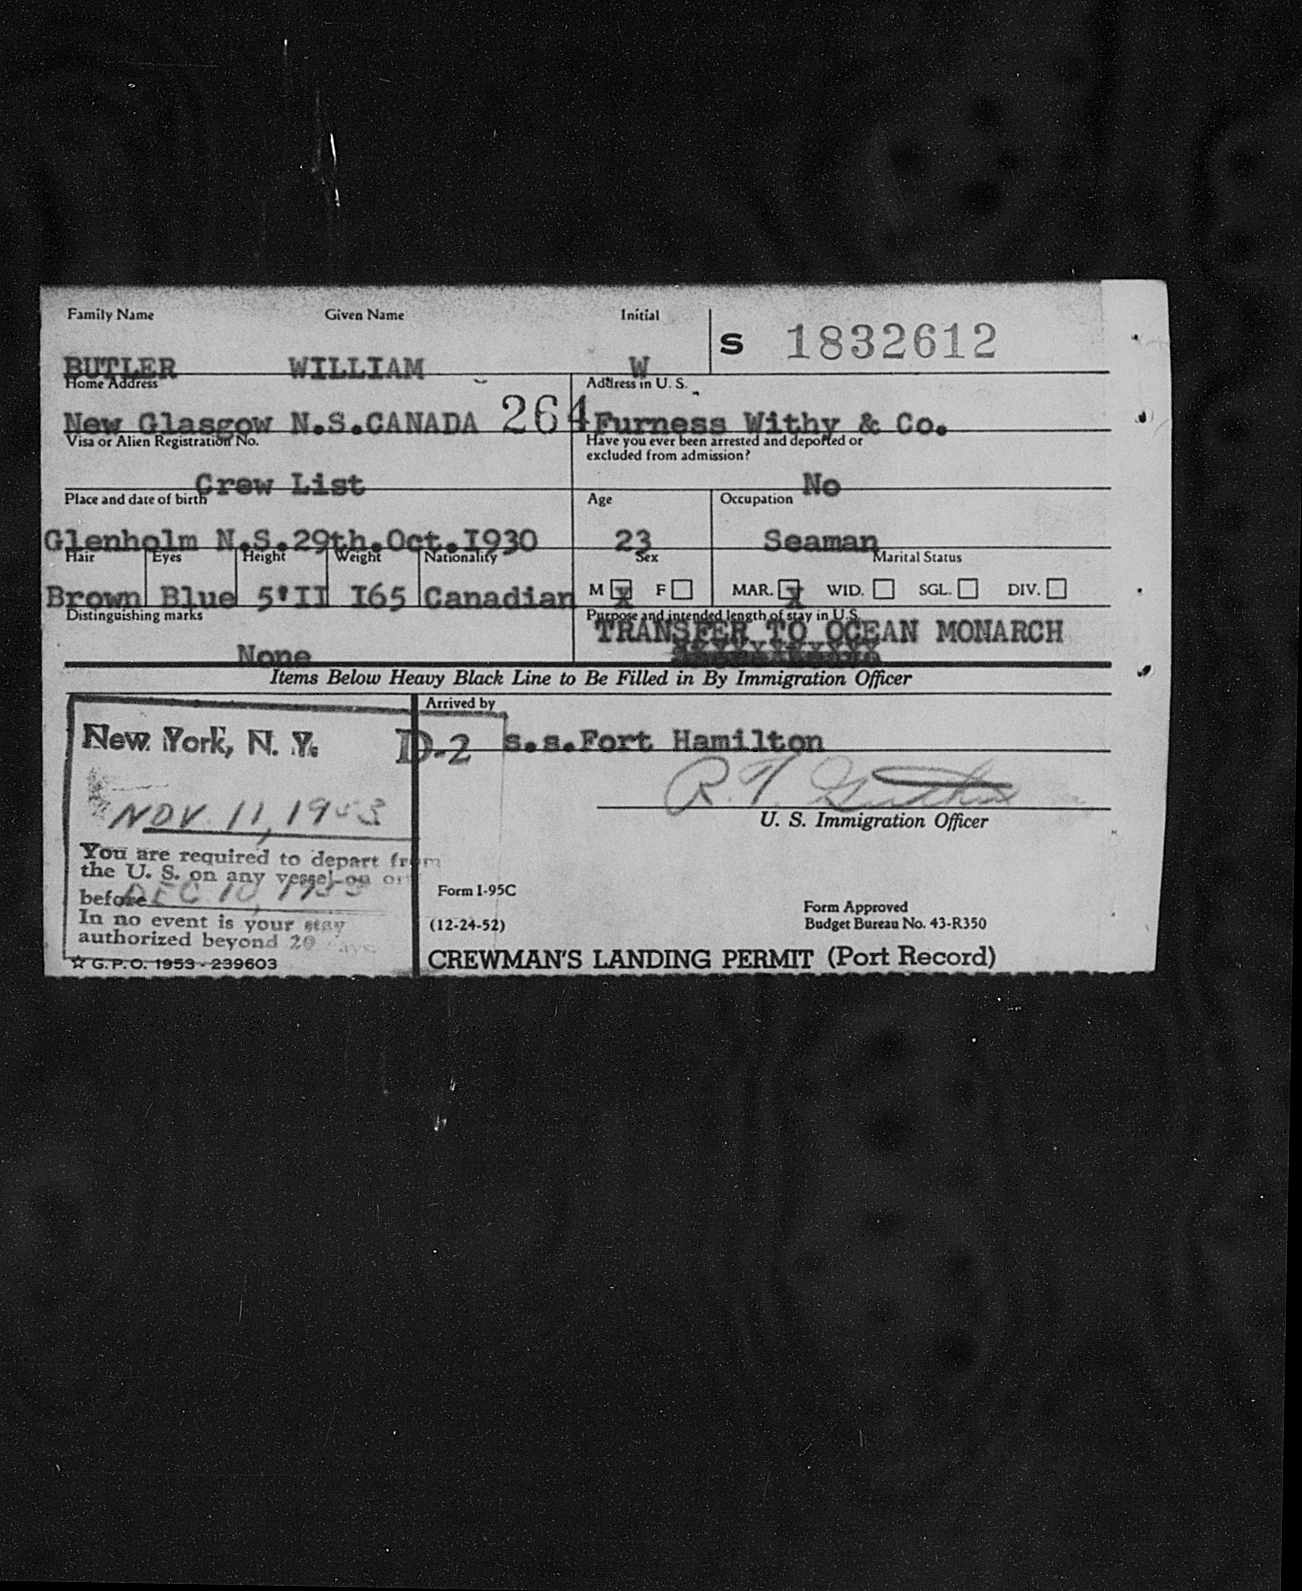 Family Name Given Name Initial
S 1832612
BUTLER WILLIAM W
Home Address Address in U. S.
New Glasgow N.S.CANADA 264 Furness Withy & Co.
Visa or Alien Registration No. Have you ever been arrested and deported or
excluded from admission?
Crew List No
Place and date of birth Age Occupation
Glenholm N.S.29th.Oct.I930 23 Seaman
Hair Eyes Height Weight Nationality Sex Marital Status
M X F MAR. X WID. SGL. DIV.
Brown Blue 5'II I65 Canadian
Distinguishing marks Purpose and intended length of stay in U.S.
TRANSFER TO OCEAN MONARCH
None
Items Below Heavy Black Line to Be Filled in By Immigration Officer
Arrived by
New York, N. Y. D-2 s.s.Fort Hamilton
NOV. 11, 1953
R. T.
U. S. Immigration Officer
You are required to depart from
the U. S. on any vessel on or
before DEC 10, 1953
In no event is your stay
authorized beyond 29 days.
☆ G.P.O. 1953-239603
Form I-95C
(12-24-52)
Form Approved
Budget Bureau No. 43-R350
CREWMAN'S LANDING PERMIT (Port Record)